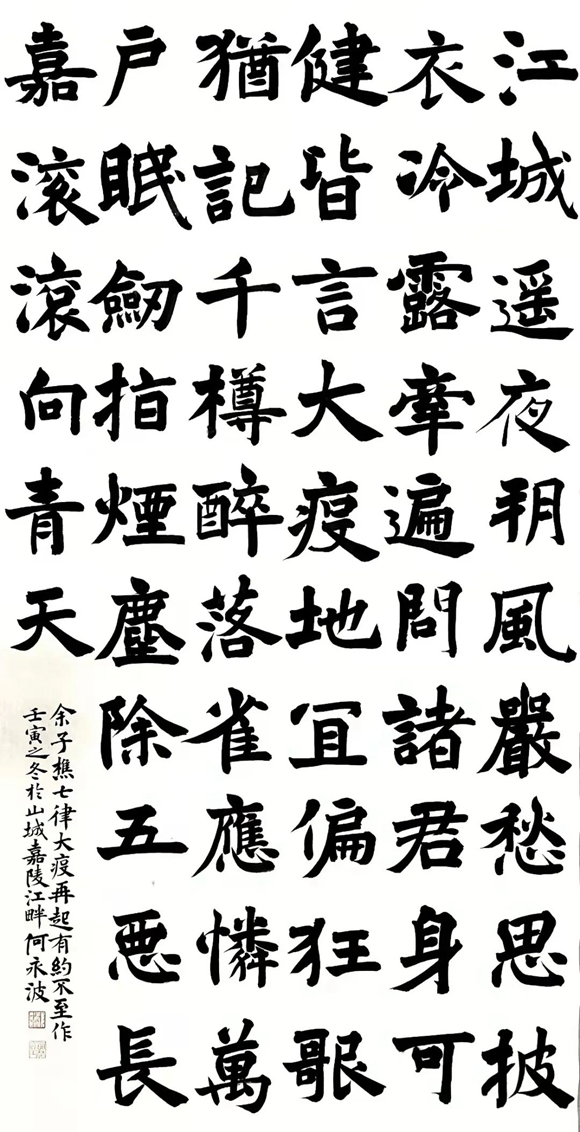 江城遥夜朔風嚴愁思披
衣冷露牽遍問諸君身可
健皆言大疫地宜偏狂歌
猶記千樽醉落雀應憐萬
戶眠劒指煙塵除五惡長
嘉滾滾向青天
余子樵七律大疫再起有約不至作
壬寅之冬於山城嘉陵江畔何永波